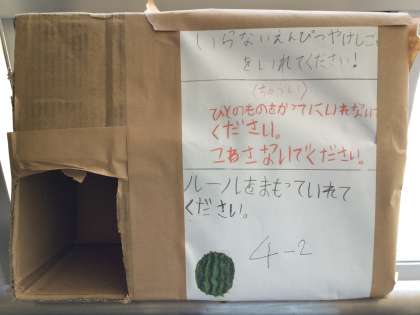 いらないえんぴつやけしごむ
をいれてください!
(ちゅうい)
ひとのものをかってにいれないで
ください。
こわさないでください。
ルールをまもっていれて
ください。
4-2